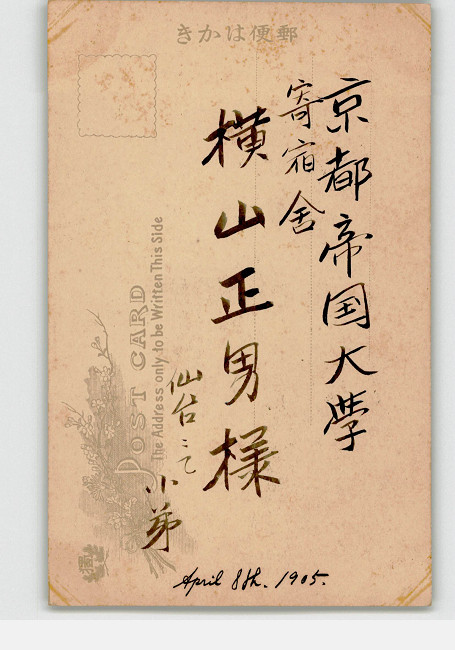 郵便はかき
京都帝国大学
寄宿舍
横山正男様
仙台ニて
小弟
POST CARD
The Address only to be Written This Side
April 8th. 1905.